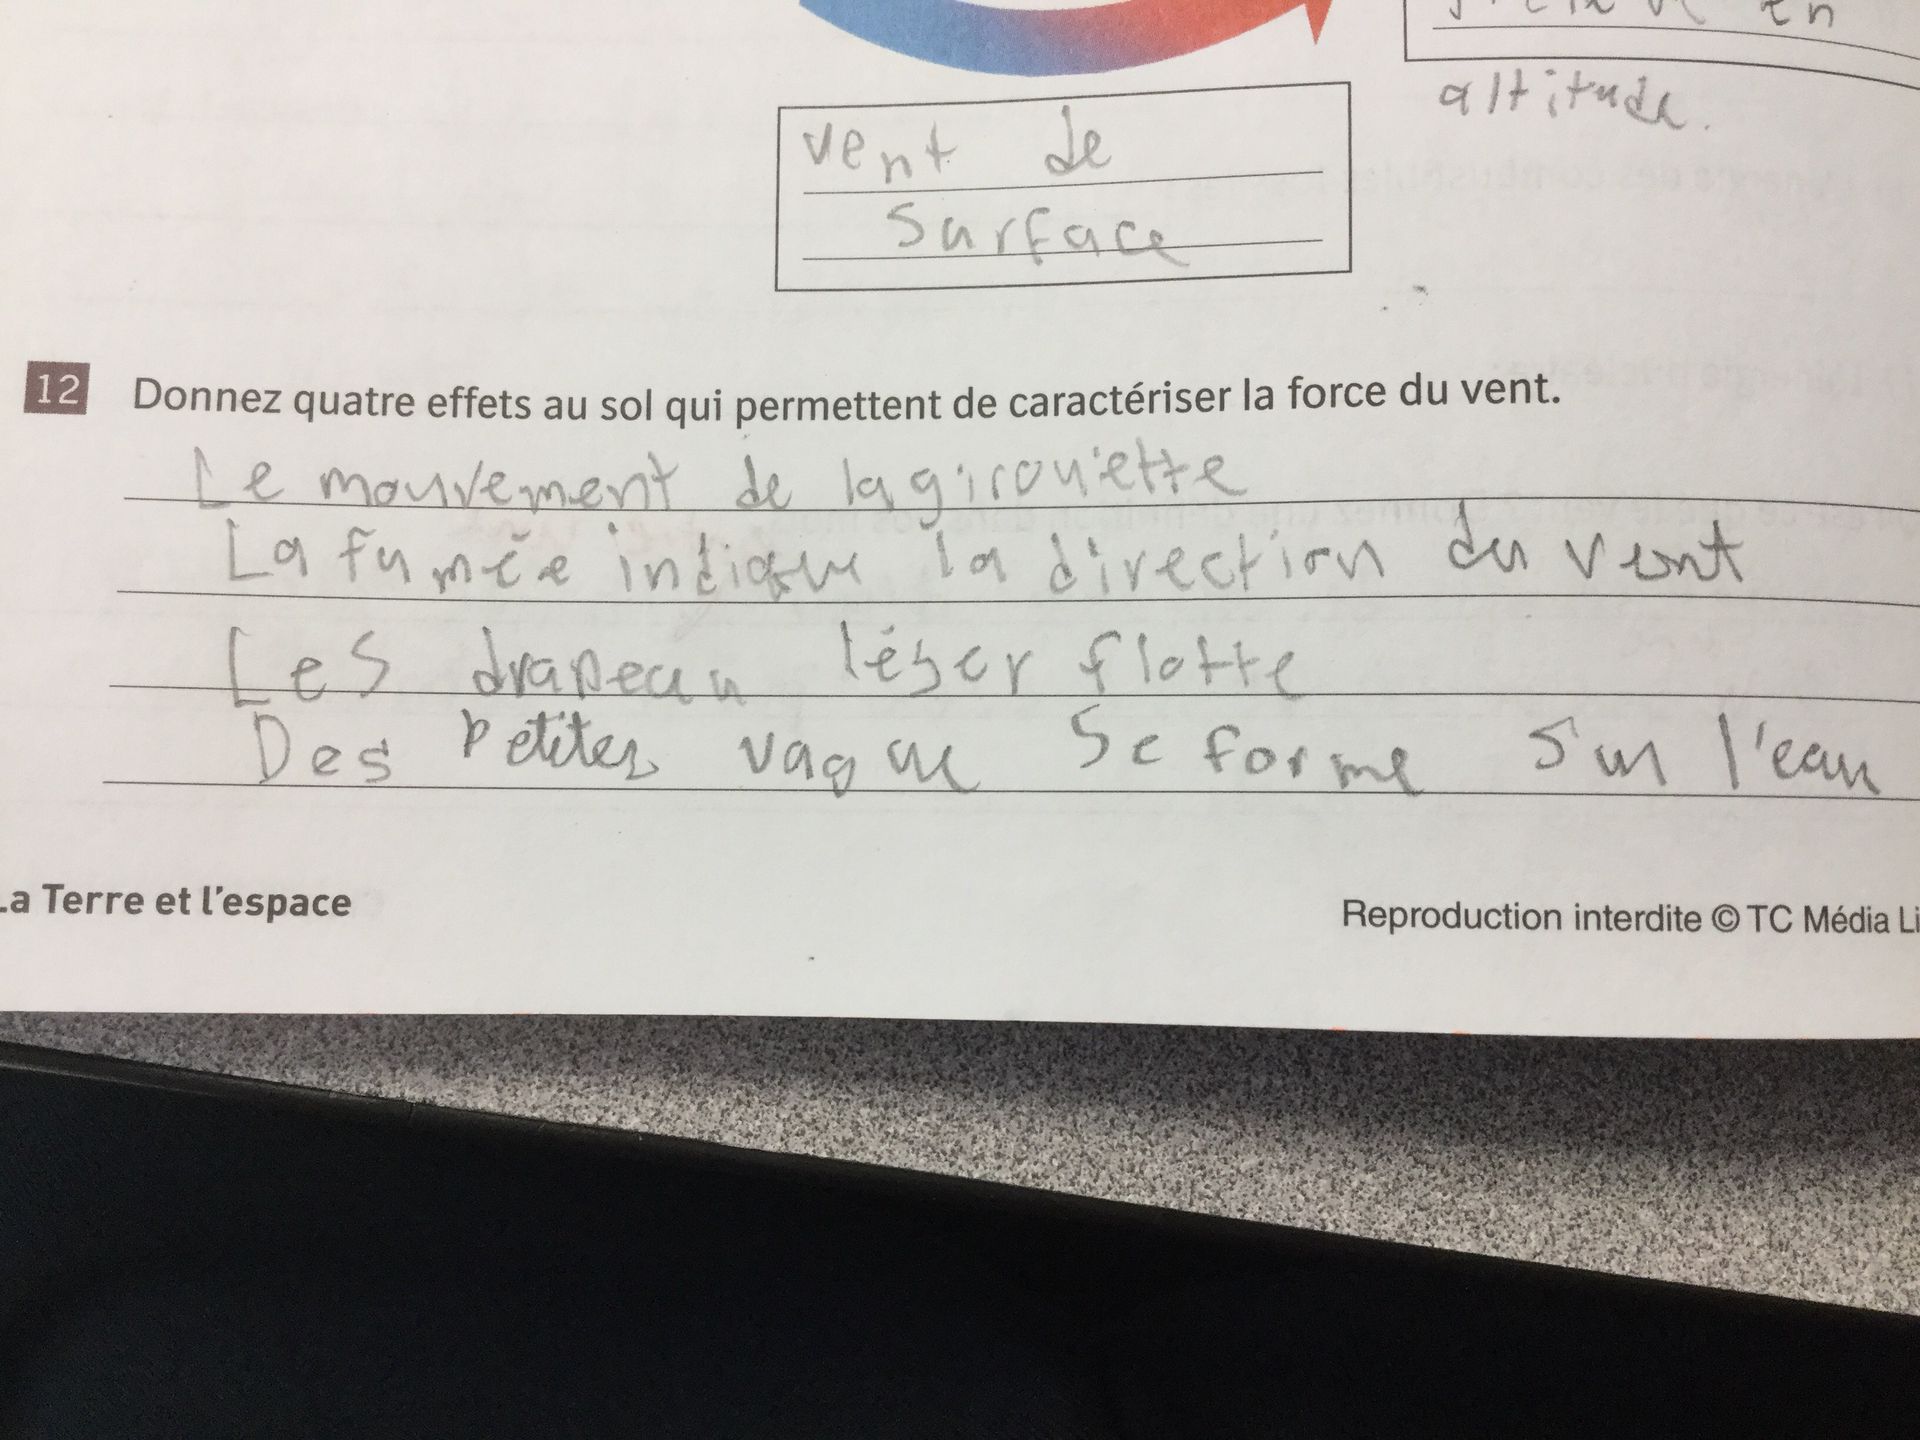 en
altitude.
vent de
surface
12 Donnez quatre effets au sol qui permettent de caractériser la force du vent.
Le mouvement de la girouette
La fumée indique la direction du vent
Les drapeau léger flotte
Des petites vague se forme sur l'eau
La Terre et l'espace
Reproduction interdite © TC Média Li